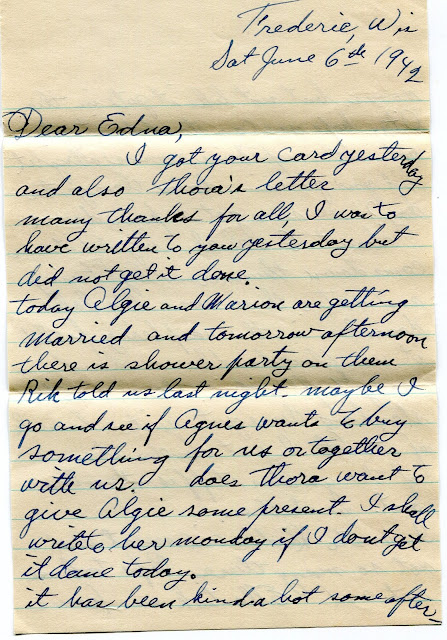 Frederic, Wis
Sat June 6th 1942
Dear Edna,
I got your card yesterday
and also Thora's letter
many thanks for all, I was to
have written to you yesterday but
did not get it done.
today Algie and Marion are getting
married and tomorrow afternoon
there is shower party on them
Rik told us last night. maybe I
go and see if Agnes wants to buy
something for us or together
with us. does Thora want to
give Algie some present. I shall
write to her monday if I dont get
it done today.
it has been kinda hot some after-